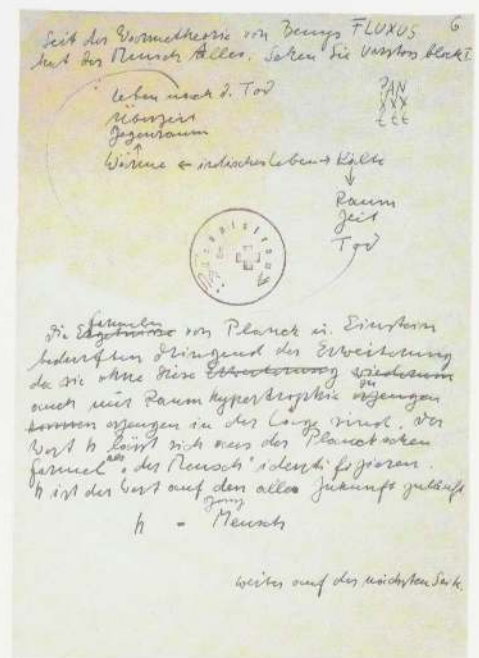 6
Seit der Wärmetheorie von Beuys FLUXUS
hat der Mensch Alles. Sehen Sie Vorstoss block I
leben nach d. Tod
Überzeit
Gegenraum
Wärme ← irdisches leben → Kälte
PAN
XXX
ttt
Raum
Zeit
Tod
Die Ergebnisse formeln von Planck u. Einstein
bedurften dringend der Erweiterung
da sie ohne diese Erweiterung wiederum
auch nur Raumhypertrophie zu erzeugen
erzeugen in der Lage sind. Der
Wert h lässt sich aus der Planckschen
formel als „der Mensch" identifizieren.
h ist der Wert auf den alle Zukunft zuläuft
h = Mensch
weiter auf der nächsten Seite.